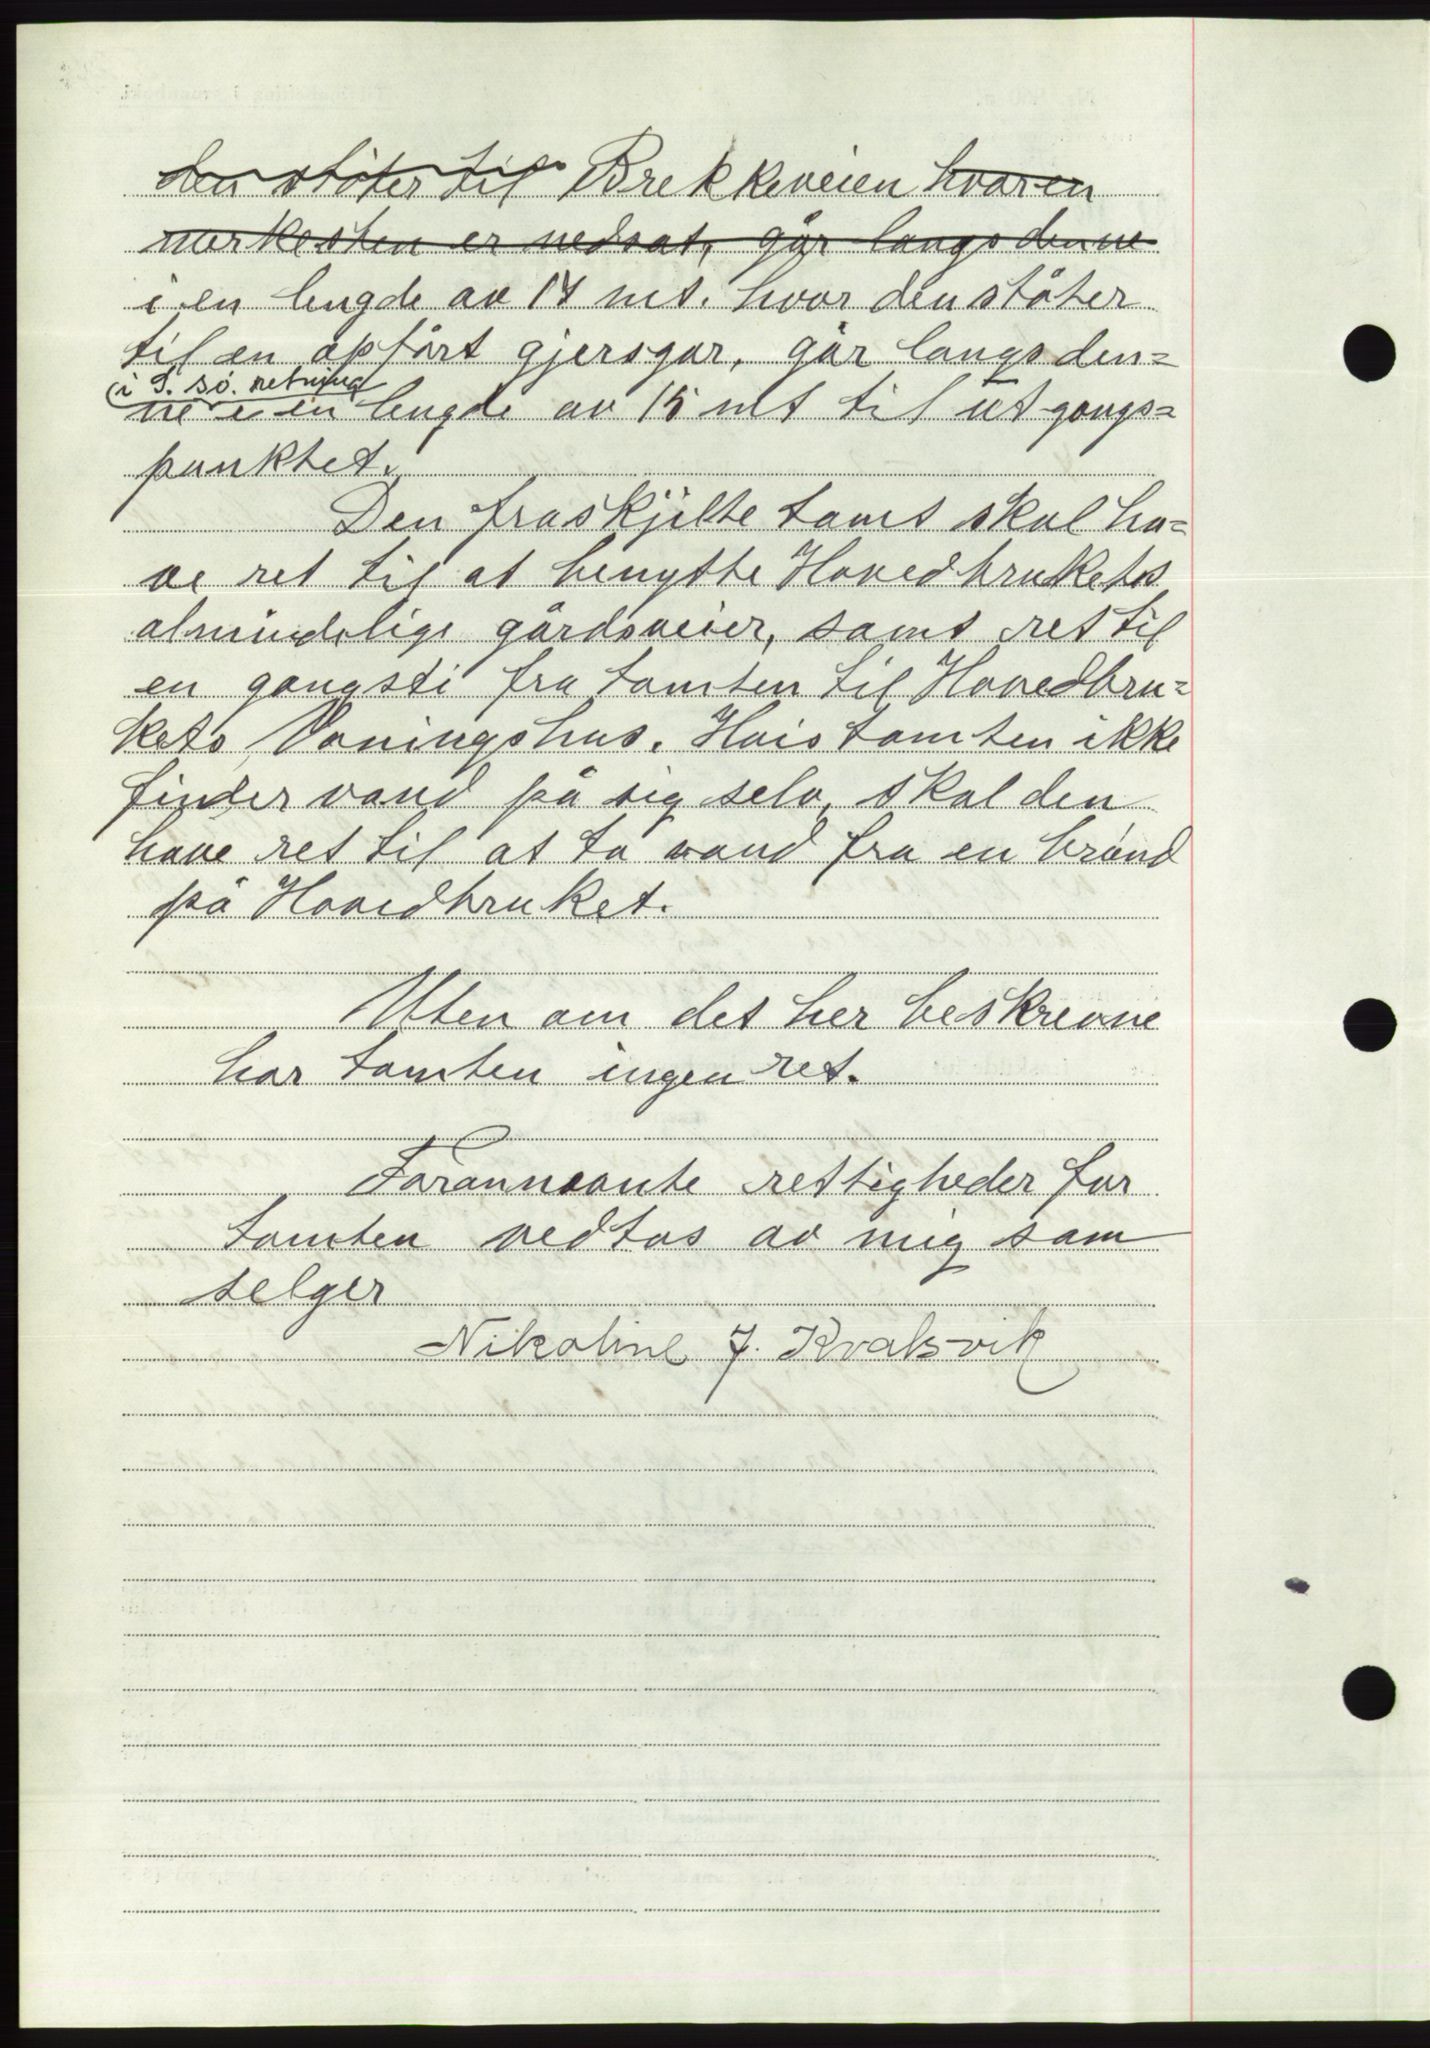 den støter til Brekkeveien hvor en
merkesten er nedsat, går langs denne
i en lengde av 17 mt. hvor den støter
til en opført gjersgar, går langs den=
i S. sø. retning
ne i en lengde av 15 mt til utgangs=
punktet.
Den fraskjilte tomt skal ha=
ve ret til at benytte Hovedbrukets
almindelige gårdsveier, samt ret til
en gangsti fra tomten til Hovedbru=
kets Vaningshus. Hvis tomten ikke
finder vand på sig selv, skal den
have ret til at ta vand fra en brønd
på Hovedbruket.
Uten om det her beskrevne
har tomten ingen ret.
Forannevnte rettigheder for
tomten vedtas av mig som
selger
Nikoline J. Kvalsvik